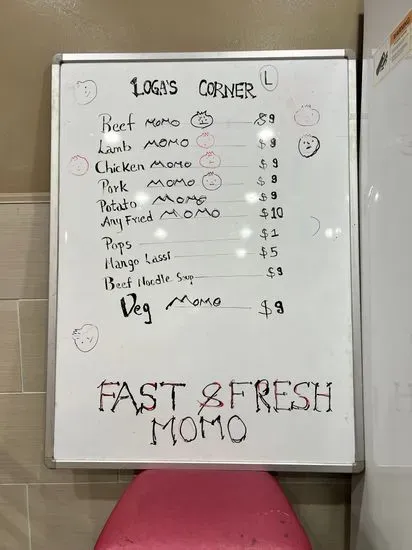 LOGA'S CORNER L
Beef MOMO $9
Lamb MOMO $9
Chicken MOMO $9
Pork MOMO $9
Potato MOMO $9
Any Fried MOMO $10
Pops $1
Mango Lassi $5
Beef Noodle Soup $9
Veg MOMO $9
FAST & FRESH
MOMO